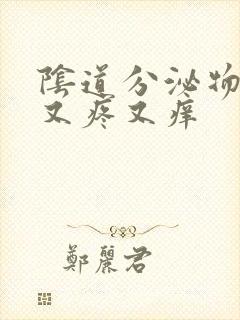 陰道分泌物
又疼又痒
鄭麗君